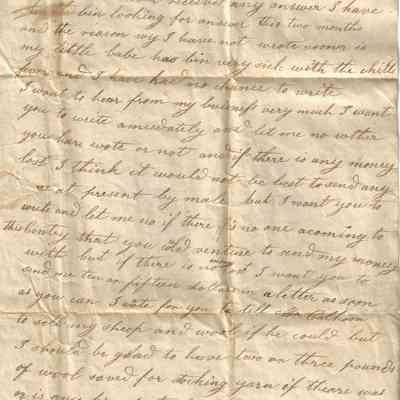 receive any answer I have
bin looking for answer this two months
and the reason wy I have not wrote sooner is
my little babe has bin very sick with the chills
fever and I have had no chance to write
I want to hear from my buisness very much I want
you to write amediately and let me no wether
you have wrote or not and if there is any money
lost I think it would not be best to send any
at present by male but I want you to
write and let me no if there is no one acoming to
this contry that you wold venture to send my money
with but if there is not I want you to
send me ten or fifteen dollars in a letter as soon
as you can I rote for you to tell
to sell my sheep and wool if he could but
I should be glad to have two or three pounds
of wool saved for stocking yarn if theare was
or is any